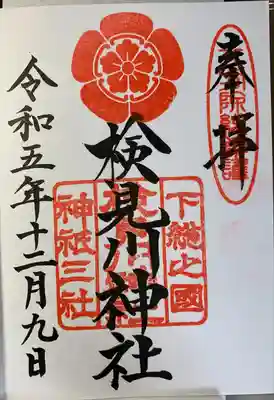 奉拝
下総之國
検見川神社
神祇三社
令和五年十二月九日